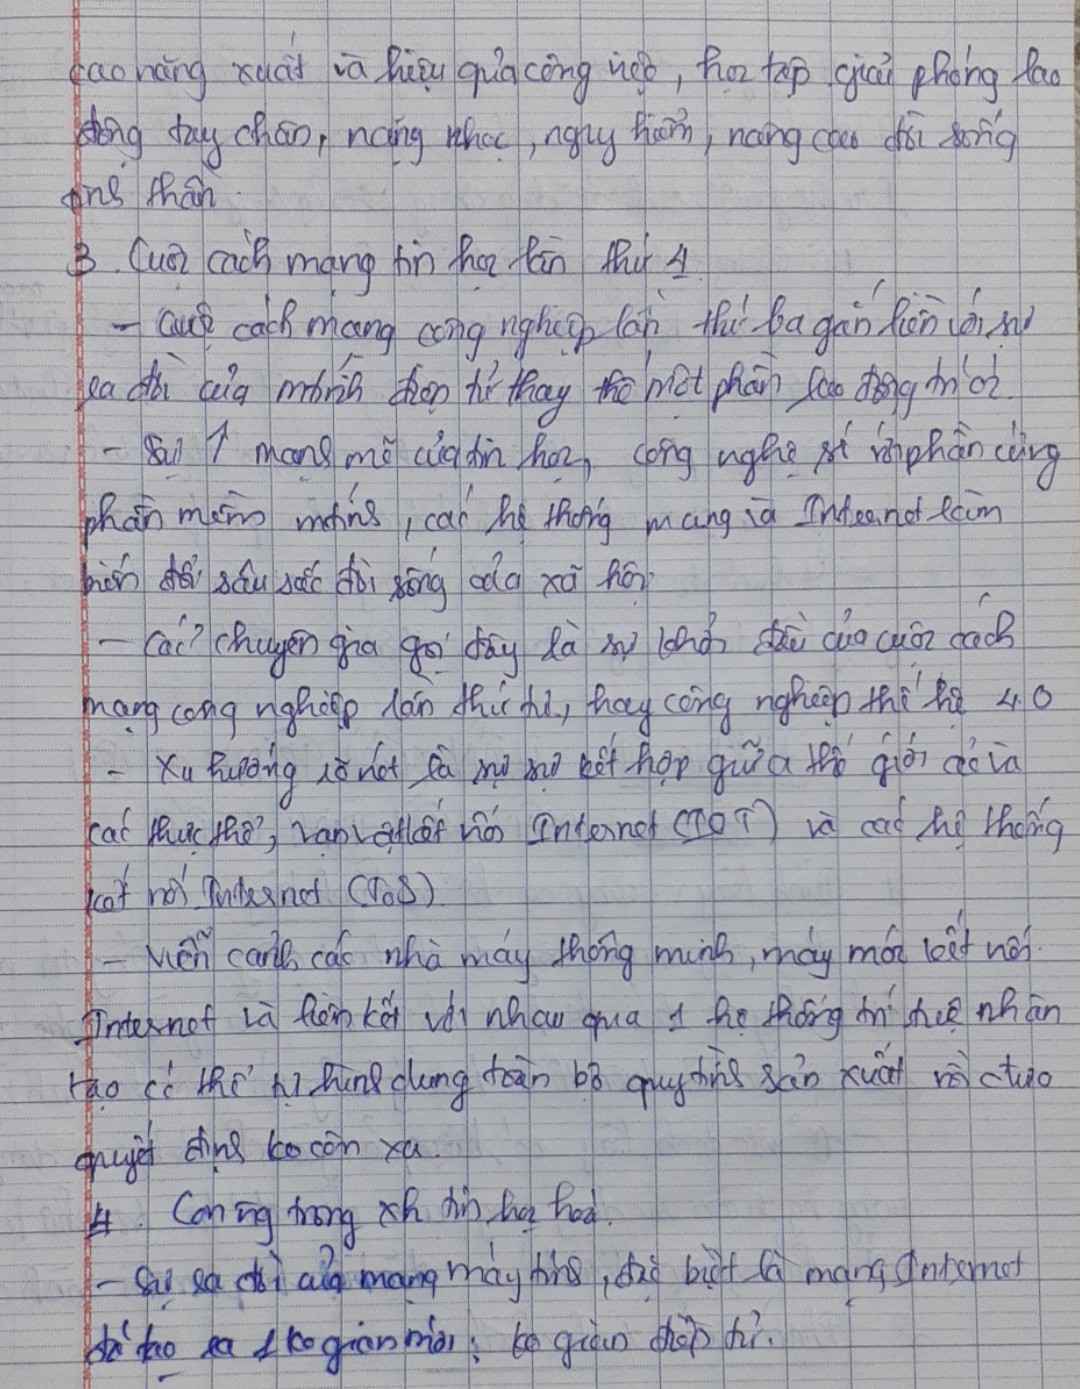 cao năng xuất và hiệu quả công việc, học tập giải phóng lao
động tay chân, nặng nhọc, nguy hiểm, nâng cao đời sống
tinh thần.
3. Cuộc cách mạng tin học lần thứ 4
- Cuộc cách mạng công nghiệp lần thứ ba gắn liền với sự
ra đời của mtính điện tử thay thế một phần lao động trí óc.
- Sự ↑ mạng mẽ của tin học, công nghệ số với phần cứng
phần mềm mtính, các hệ thống mạng và Internet làm
biến đổi sâu sắc đời sống của xã hội
- Các chuyên gia gọi đây là sự khởi đầu của cuộc cách
mạng công nghiệp lần thứ tư, hay công nghiệp thế hệ 4.0
- Xu hướng rõ nét là sự sự kết hợp giữa thế giới ảo và
các thực thể, vạn vật kết nối Internet (IOT) và các hệ thống
kết nối Internet (IoS)
- Viễn cảnh các nhà máy thông minh, máy móc kết nối
Internet và liên kết với nhau qua 1 hệ thống trí tuệ nhân
tạo có thể tự hình dung toàn bộ quy trình sản xuất rồi đưa
quyết định ko còn xa.
4. Con ng trong xh tin học hoá.
- Sự ra đời của mạng máy tính, đặc biệt là mạng Internet
đã tạo ra 1 ko gian mới: ko gian điện tử.